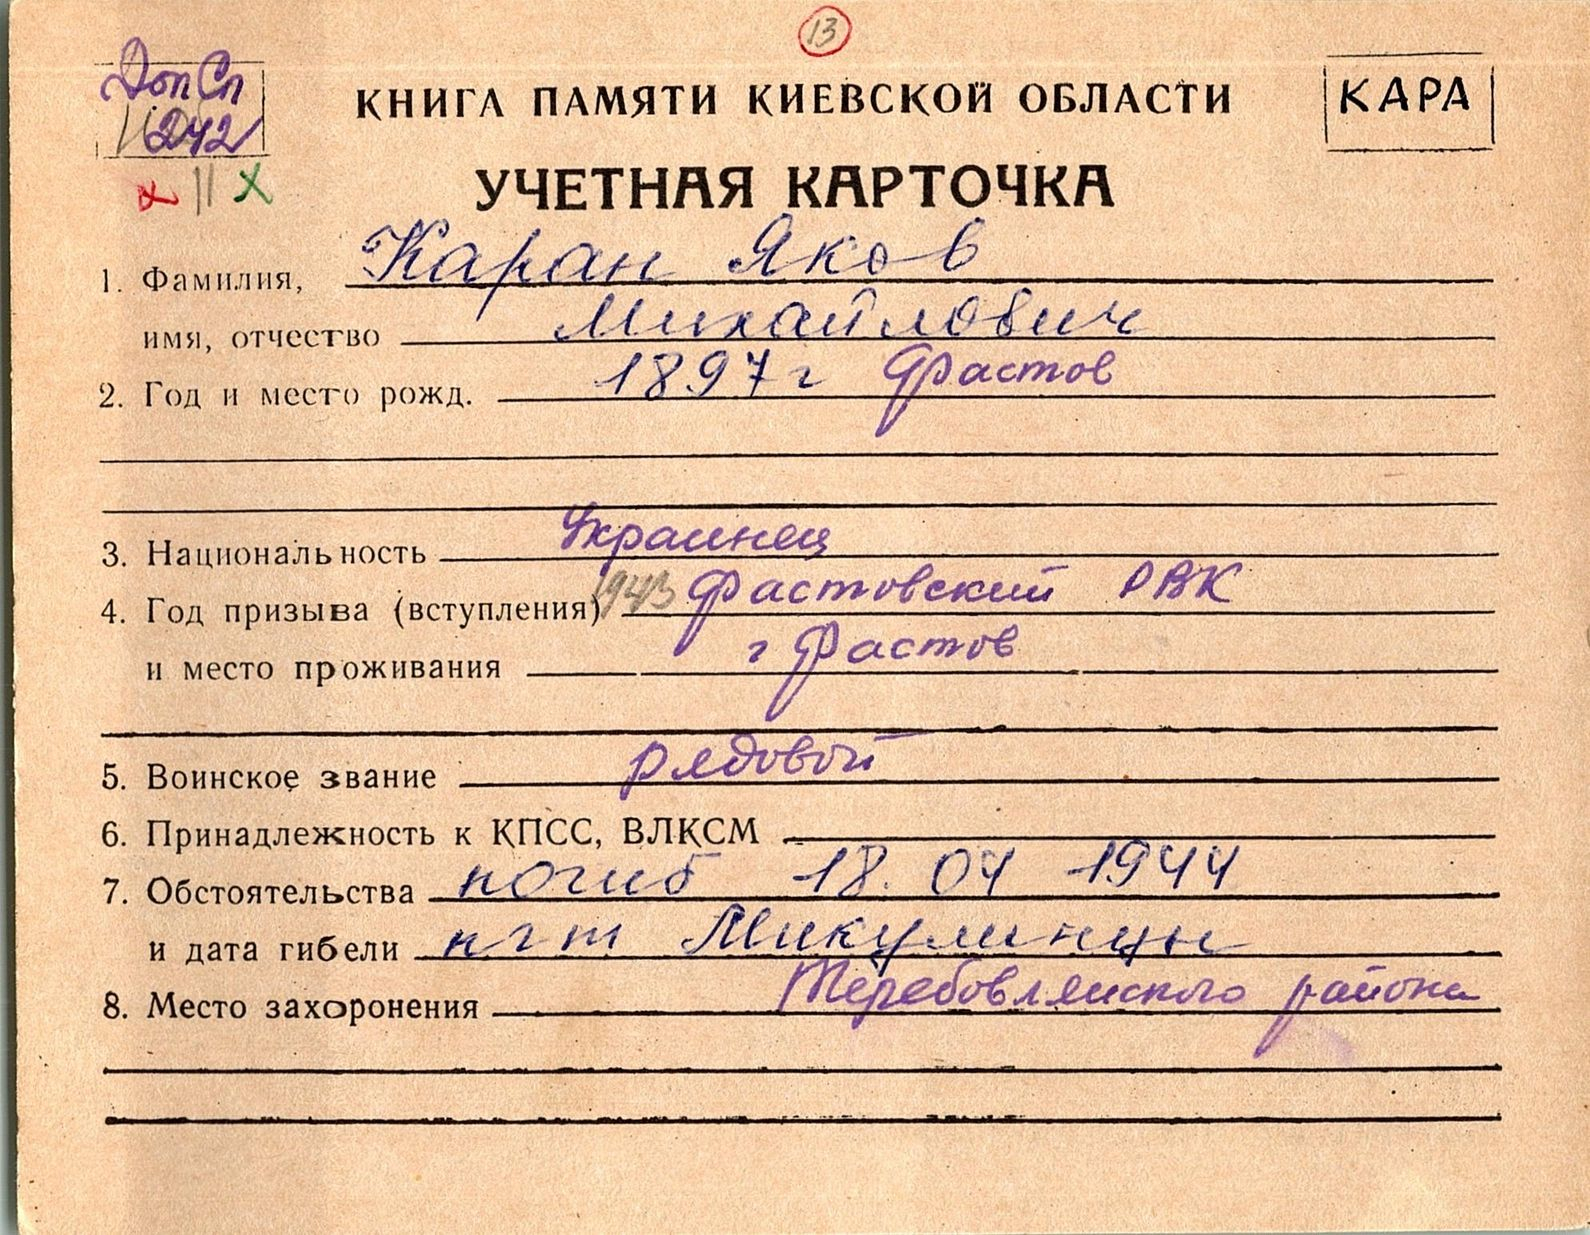 13
Доп Сп
242
КНИГА ПАМЯТИ КИЕВСКОЙ ОБЛАСТИ
КАРА
УЧЕТНАЯ КАРТОЧКА
1. Фамилия, Каран Яков
имя, отчество Михайлович
2. Год и место рожд. 1897 г Фастов
3. Национальность Украинец
4. Год призыва (вступления) 1943 Фастовский РВК
и место проживания г Фастов
5. Воинское звание рядовой
6. Принадлежность к КПСС, ВЛКСМ
7. Обстоятельства погиб 18. 04 1944
и дата гибели пгт Микулинцы
8. Место захоронения Теребовлянского района